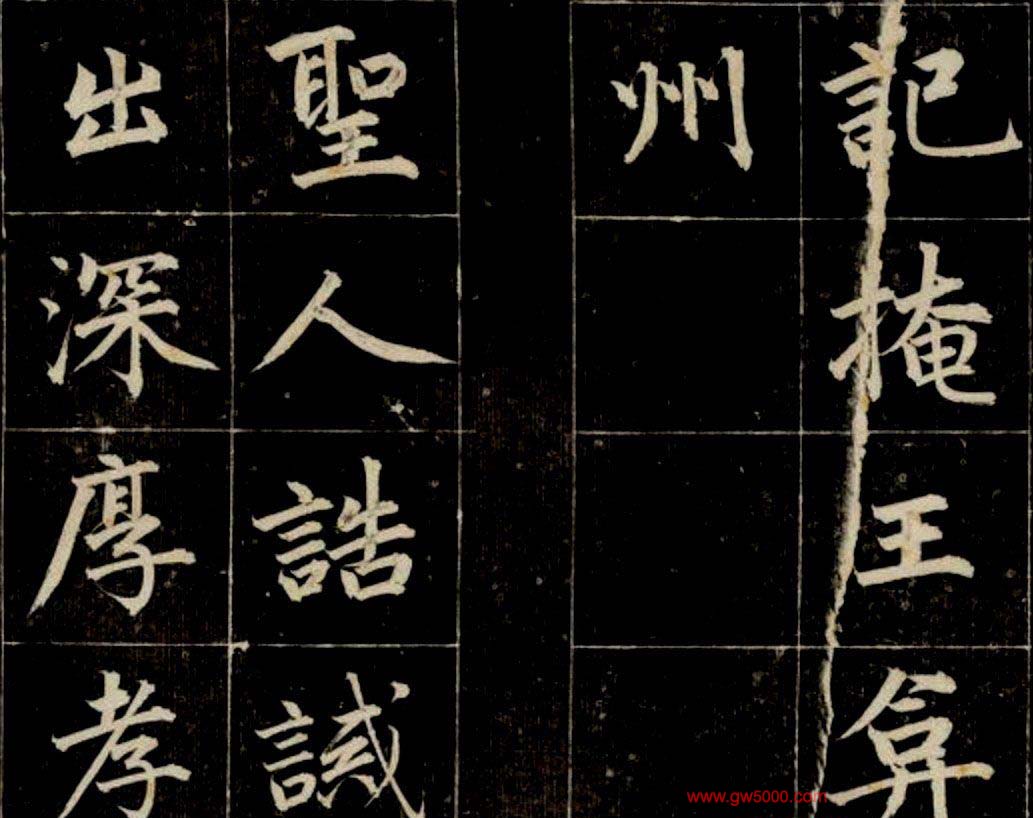 記掩王弇
州
聖人誥誡
出深厚孝
www.gw5000.com